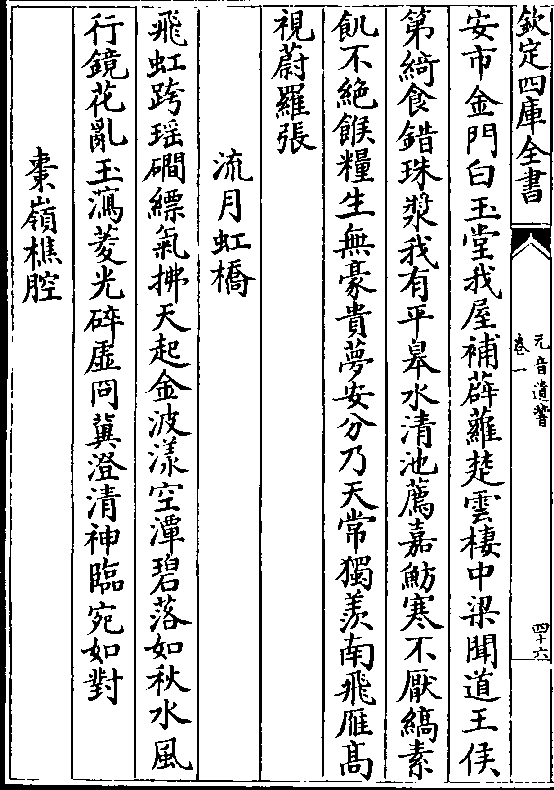 欽定四庫全書
元音遺響
卷一
四十六
安市金門白玉堂我屋補薜蘿楚雲棲中梁聞道王侯
第綺食錯珠漿我有平皋水清池薦嘉魴寒不厭縞素
飢不絶餱糧生無豪貴夢安分乃天常獨羨南飛雁髙
視蔚羅張
流月虹橋
飛虹跨瑶磵縹氣拂天起金波漾空潭碧落如秋水風
行鏡花亂玉瀉菱光碎虛冏冀澄清神臨宛如對
棗嶺樵腔